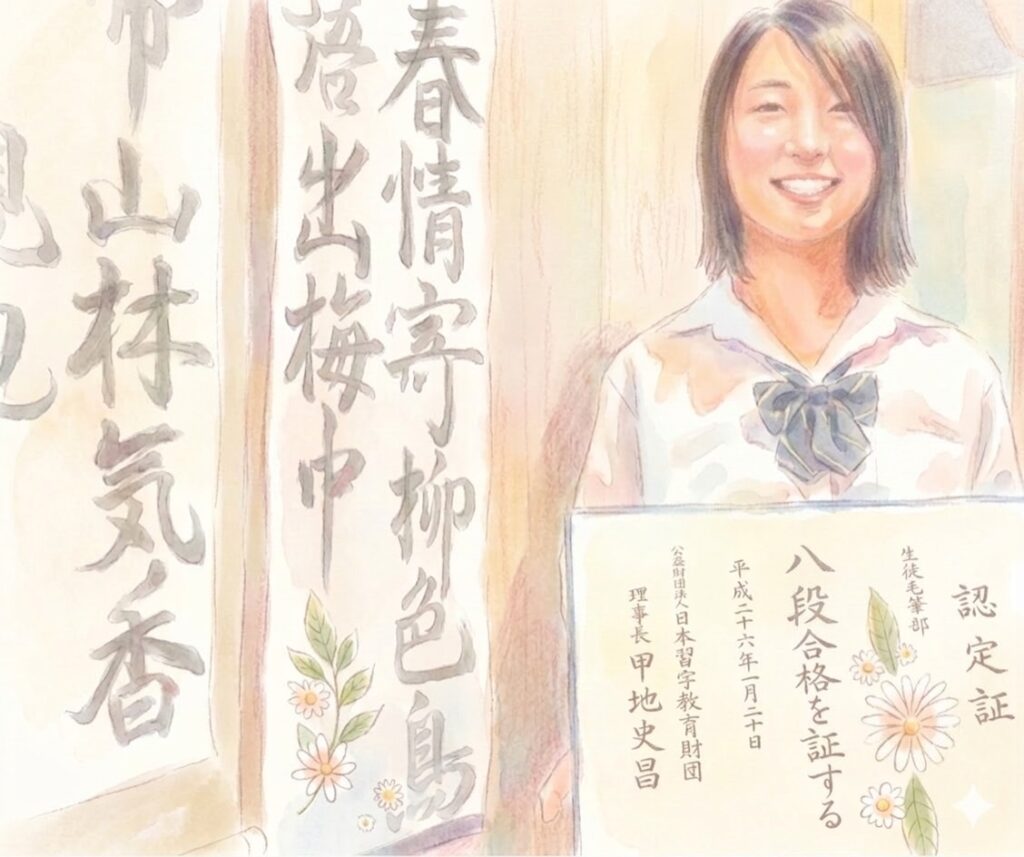 春情寄柳色鳥
語出梅中
山林気香
認定証
生徒毛筆部
八段合格を証する
平成二十六年一月二十日
公益財団法人日本習字教育財団
理事長 甲地史昌